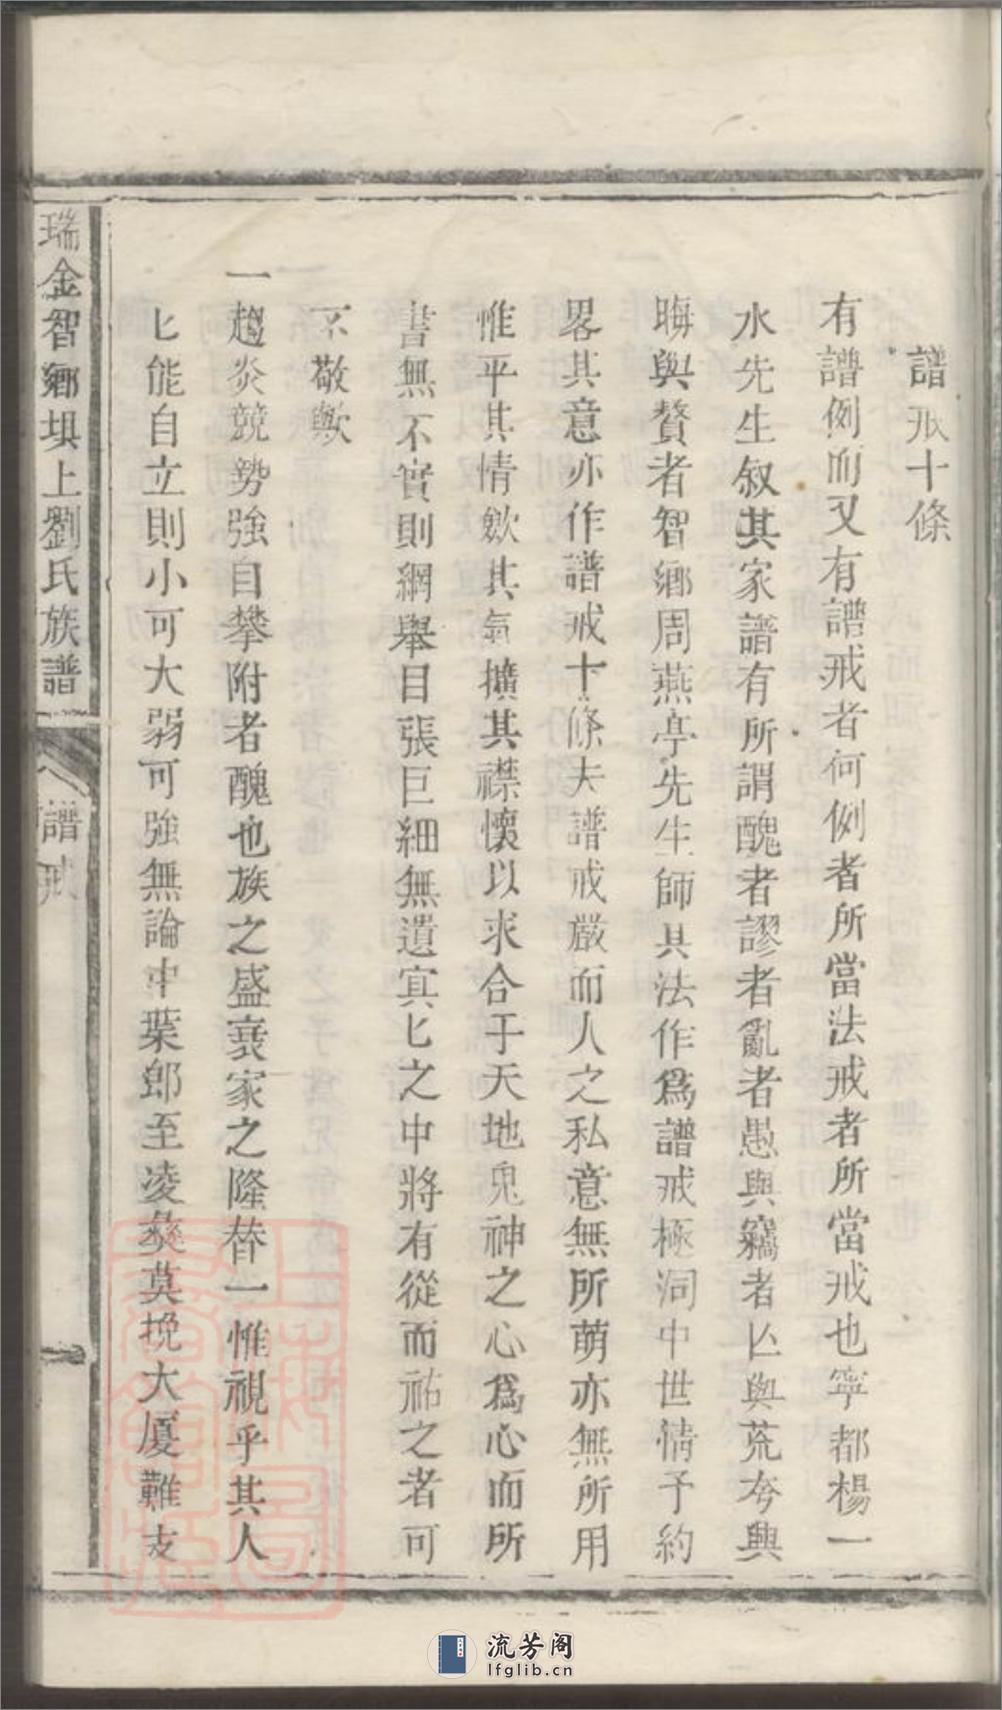 譜戒十條
有譜例而又有譜戒者何例者所當法戒者所當戒也寧都楊一
水先生叙其家譜有所謂醜者謬者亂者愚與竊者亾與荒夸與
聨與贅者智鄉周燕亭先生師其法作爲譜戒極洞中世情予約
畧其意亦作譜戒十條夫譜戒嚴而人之私意無所萌亦無所用
惟平其情歛其氣擴其襟懷以求合于天地鬼神之心爲心而所
書無不實則綱舉目張巨細無遺冥匕之中將有從而祐之者可
不敬歟
一趨炎競勢強自攀附者醜也族之盛衰家之隆替一惟視乎其人
匕能自立則小可大弱可強無論中葉郎至凌彝莫挽大厦難支
瑞金智鄉垻上劉氏族譜
譜戒
一
流芳阁
lfglib.cn